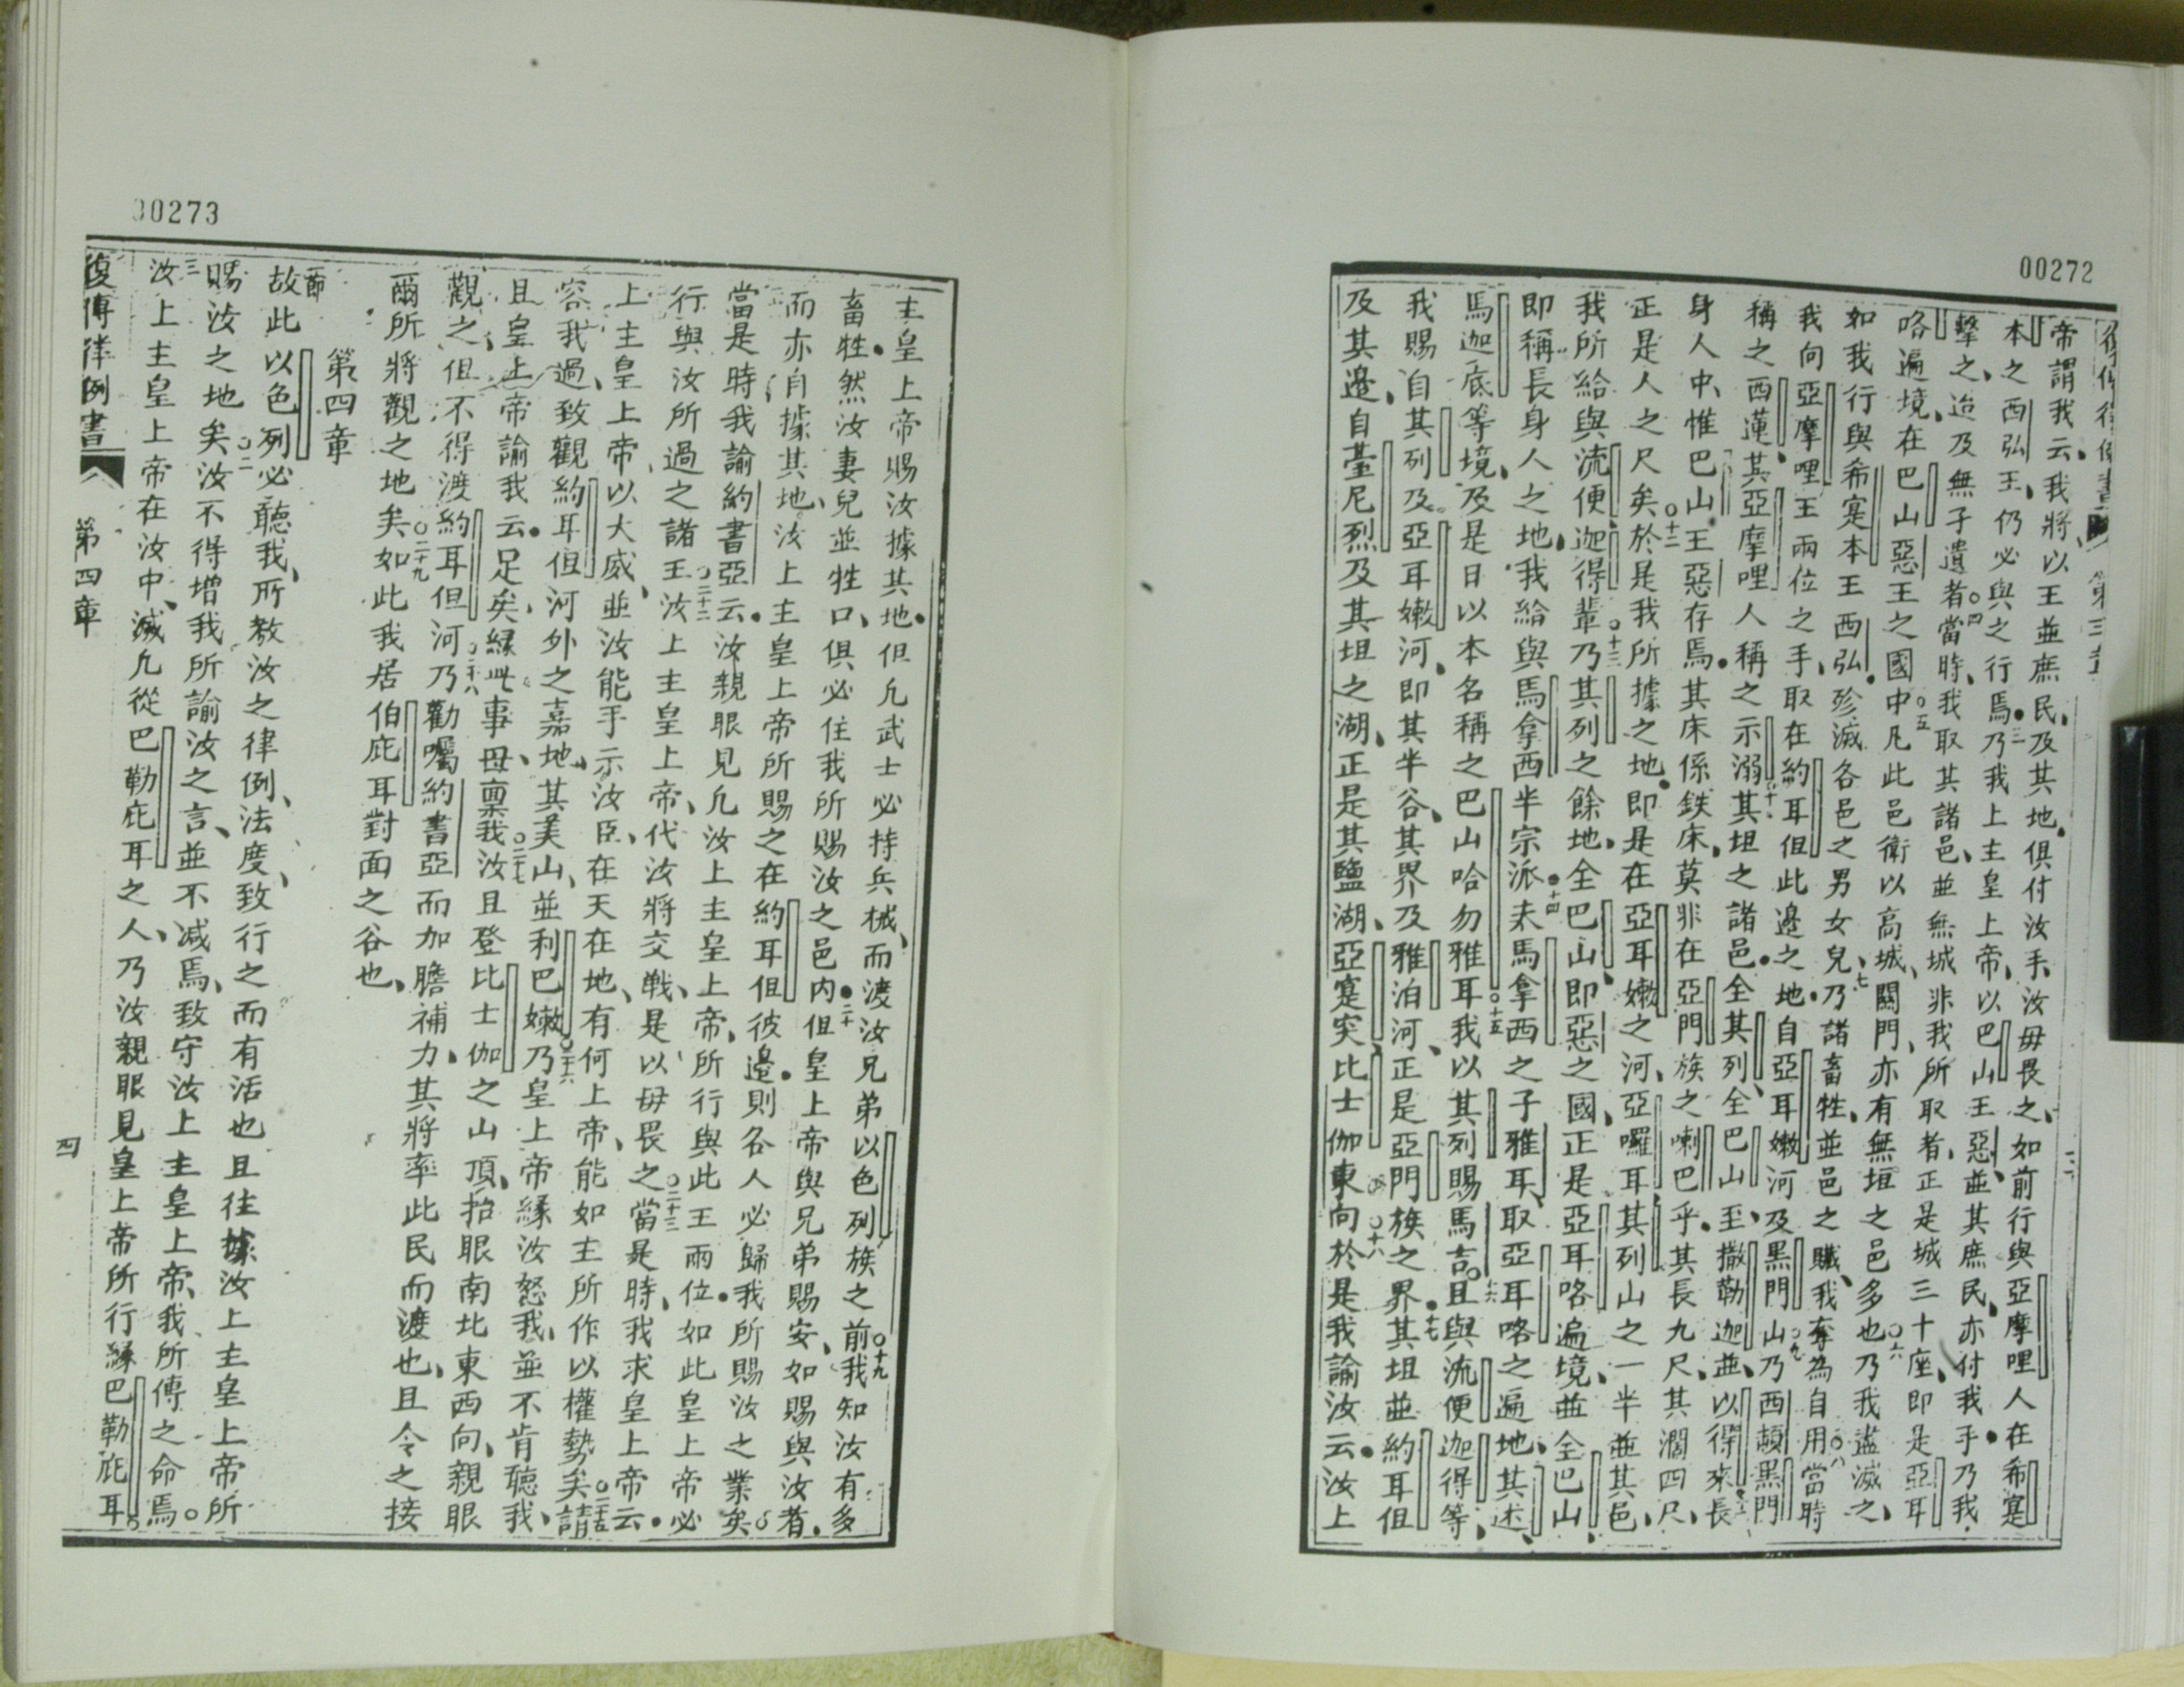 00272
復傳律例書
第三章
三
帝謂我云、我將以王並庶民、及其地、俱付汝手、汝毋畏之、如前行與亞摩哩人在希寔
本之西弘王、仍必與之行焉●三乃我上主皇上帝、以巴山王惡並其庶民、亦付我手●乃我
擊之、迨及無孑遺者○四當時、我取其諸邑、並無城非我所取者、正是城三十座、即是亞耳
咯遍境、在巴山惡王之國中○五凡此邑衛以高城、關門、亦有無垣之邑多也○六乃我盡滅之、
如我行與希寔本王西弘●殄滅各邑之男女兒、七乃諸畜牲、並邑之贓、我奪為自用○八當時
我向亞摩哩王兩位之手、取在約耳但此邊之地、自亞耳嫩河及黑門山○九乃西頓黑門
稱之西蓮、其亞摩哩人稱之示溺○十其坦之諸邑●全其列、全巴山、至撒勒迦、並以得來長
身人中、惟巴山王惡存焉●其床係鉄床、莫非在亞門族之喇巴乎、其長九尺、其濶四尺、
正是人之尺矣○十二於是我所據之地●即是在亞耳嫩之河、亞囉耳其列山之一半並其邑、
我所給與流便迦得輩○十三乃其列之餘地、全巴山、即惡之國、正是亞耳咯遍境、並全巴山、
即稱長身人之地、我給與馬拿西半宗派●十四夫馬拿西之子雅耳、取亞耳咯之遍地、其述、
馬迦底等境、及是日以本名稱之巴山哈勿雅耳○十五我以其列賜馬吉○十六且與流便迦得等、
我賜自其列及亞耳嫩河、即其半谷、其界及雅泊河、正是亞門族之界●十七其坦並約耳但
及其邊、自基尼烈及其坦之湖、正是其鹽湖、亞寔突比士伽東向○十八於是我諭汝云●汝上
00273
主皇上帝賜汝據其地●但凡武士必持兵械、而渡汝兄弟以色列族之前○十九我知汝有多
畜牲●然汝妻兒並牲口、俱必住我所賜汝之邑內●二十但皇上帝與兄弟賜安、如賜與汝者、
而亦自據其地、汝上主皇上帝所賜之在約耳但彼邊●則各人必歸我所賜汝之業矣○
當是時我諭約書亞云●汝親眼見凡汝上主皇上帝、所行與此王兩位●如此皇上帝必
行與汝所過之諸王○二十二汝上主皇上帝、代汝將交戰、是以毋畏之○二十三當是時、我求皇上帝云●
上主皇上帝、以大威、並汝能手示汝臣、在天在地、有何上帝、能如主所作以權勢矣○二十五請
容我過、致觀約耳但河外之嘉地、其美山、並利巴嫩○二十六乃皇上帝緣汝怒我、並不肯聽我、
且皇上帝諭我云●足矣、緣此事、毋稟我○二十七汝且登比士伽之山頂、抬眼南北東西向、親眼
觀之、但不得渡約耳但河○二十八乃勸囑約書亞而加膽補力、其將率此民而渡也、且令之接
爾所將觀之地矣○二十九如此我居伯庇耳對面之谷也、
第四章
一節故此以色列必聽我、所教汝之律例、法度、致行之而有活也且往據汝上主皇上帝所
賜汝之地矣○二汝不得增我所諭汝之言、並不减焉、致守汝上主皇上帝、我所傳之命焉○
三汝上主皇上帝在汝中、滅凡從巴勒庇耳之人、乃汝親眼見皇上帝所行緣巴勒庇耳○
復傳律例書
第四章
四